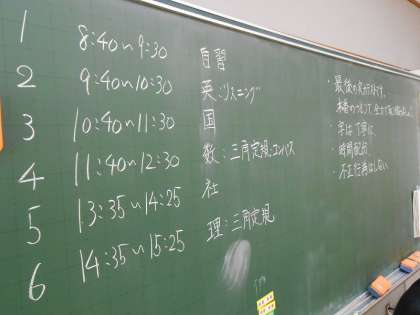 1 8:40〜9:30 自習
2 9:40〜10:30 英:リスニング
3 10:40〜11:30 国
4 11:40〜12:30 数:三角定規、コンパス
5 13:35〜14:25 社
6 14:35〜15:25 理:三角定規
・最後の実力テストです。
本番のつもりで、全力で取り組みましょう
・字は丁寧に
・時間配分
・不正行為はしない